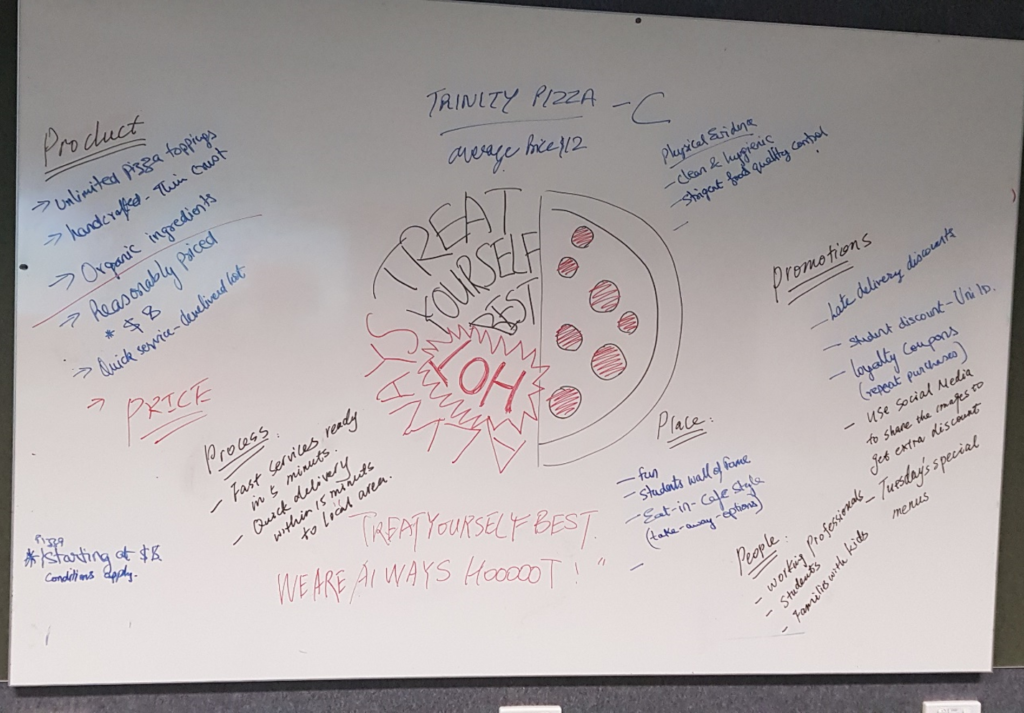 TRINITY PIZZA - C
average Price $12
Product
→ Unlimited Pizza toppings
→ handcrafted - Thin crust
→ Organic ingredients
→ Reasonably priced
* $8
→ Quick service - delivered hot
→ PRICE
TREAT
YOURSELF
BEST
HOT
ALWAYS
Physical Evidence
- Clean & hygienic
- Stringent food quality control
-
Promotions
- Late delivery discounts
- Student discount - Uni ID.
- Loyalty Coupons
(repeat purchases)
- Use Social Media
to share the images to
get extra discount
- Tuesday's special
menus
Process:
- Fast services ready
in 5 minuts.
- Quick delivery
within 15 minuts
to local area.
Place:
- fun
- Students wall of fame
- Eat-in-Cafe Style
(take-away-options)
-
People:
- Working Professionals
- Students
- Families with kids
Pizza
* Starting at $8
Conditions apply.
TREAT YOURSELF BEST.
WE ARE ALWAYS HOOOOOT ! "